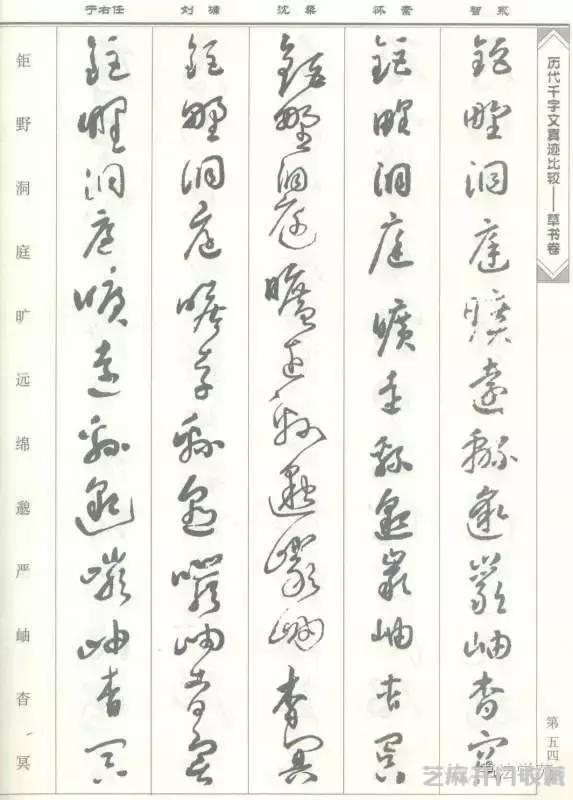 历代千字文真迹比较——草书卷
智永
怀素
沈粲
刘墉
于右任
钜野洞庭旷远绵邈严岫杳冥
钜野洞庭旷远绵邈岩岫杳冥
钜野洞庭旷远绵邈岩岫杳冥
钜野洞庭旷远绵邈岩岫杳冥
钜野洞庭旷远绵邈岩岫杳冥
钜野洞庭旷远绵邈岩岫杳冥
第五四
芝麻开门收藏